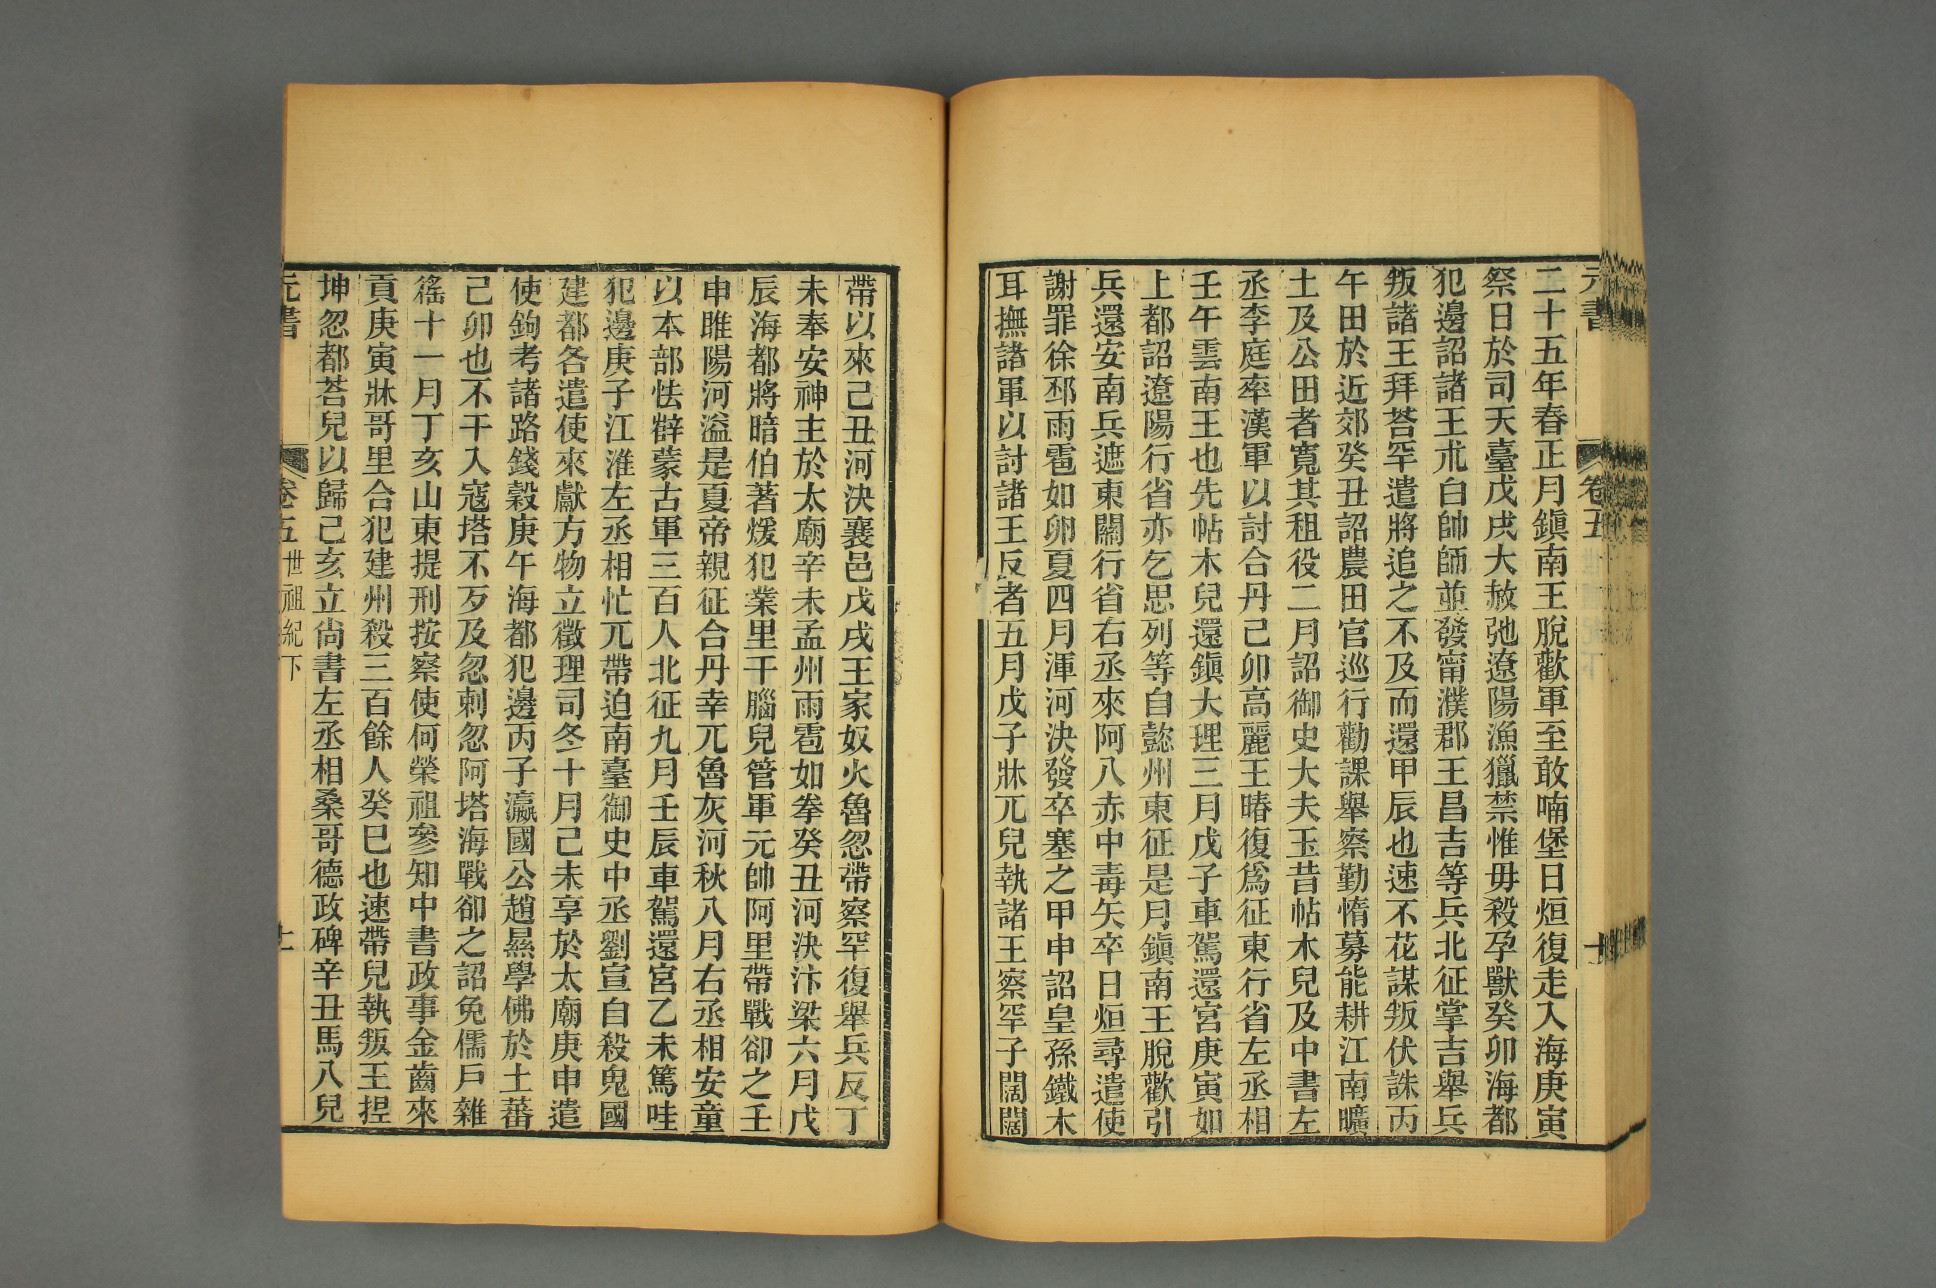 元書 卷五 十
二十五年春正月鎭南王脫歡軍至敢喃堡日烜復走入海庚寅
祭日於司天臺戊戌大赦弛遼陽漁獵禁惟毋殺孕獸癸卯海都
犯邊詔諸王朮白帥師並發甯濮郡王昌吉等兵北征掌吉舉兵
叛諸王拜荅罕遣將追之不及而還甲辰也速不花謀叛伏誅丙
午田於近郊癸丑詔農田官巡行勸課舉察勤惰募能耕江南曠
土及公田者寬其租役二月詔御史大夫玉昔帖木兒及中書左
丞李庭率漢軍以討合丹己卯高麗王賰復爲征東行省左丞相
壬午雲南王也先帖木兒還鎭大理三月戊子車駕還宮庚寅如
上都詔遼陽行省亦乞思列等自懿州東征是月鎭南王脫歡引
兵還安南兵遮東關行省右丞來阿八赤中毒矢卒日烜尋遣使
謝罪徐邳雨雹如卵夏四月渾河決發卒塞之甲申詔皇孫鐵木
耳撫諸軍以討諸王反者五月戊子牀兀兒執諸王察罕子闊闊
帶以來己丑河決襄邑戊戌王家奴火魯忽帶察罕復舉兵反丁
未奉安神主於太廟辛未孟州雨雹如拳癸丑河決汴梁六月戊
辰海都將暗伯著煖犯業里干腦兒管軍元帥阿里帶戰卻之壬
申睢陽河溢是夏帝親征合丹幸兀魯灰河秋八月右丞相安童
以本部怯辥蒙古軍三百人北征九月壬辰車駕還宮乙未篤哇
犯邊庚子江淮左丞相忙兀帶迫南臺御史中丞劉宣自殺鬼國
建都各遣使來獻方物立徵理司冬十月己未享於太廟庚申遣
使鉤考諸路錢穀庚午海都犯邊丙子瀛國公趙㬎學佛於土蕃
己卯也不干入寇塔不歹及忽刺忽阿塔海戰卻之詔免儒戶雜
徭十一月丁亥山東提刑按察使何榮祖參知中書政事金齒來
貢庚寅牀哥里合犯建州殺三百餘人癸巳也速帶兒執叛王捏
坤忽都荅兒以歸己亥立尙書左丞相桑哥德政碑辛丑馬八兒
元書 卷五 世祖紀下 十